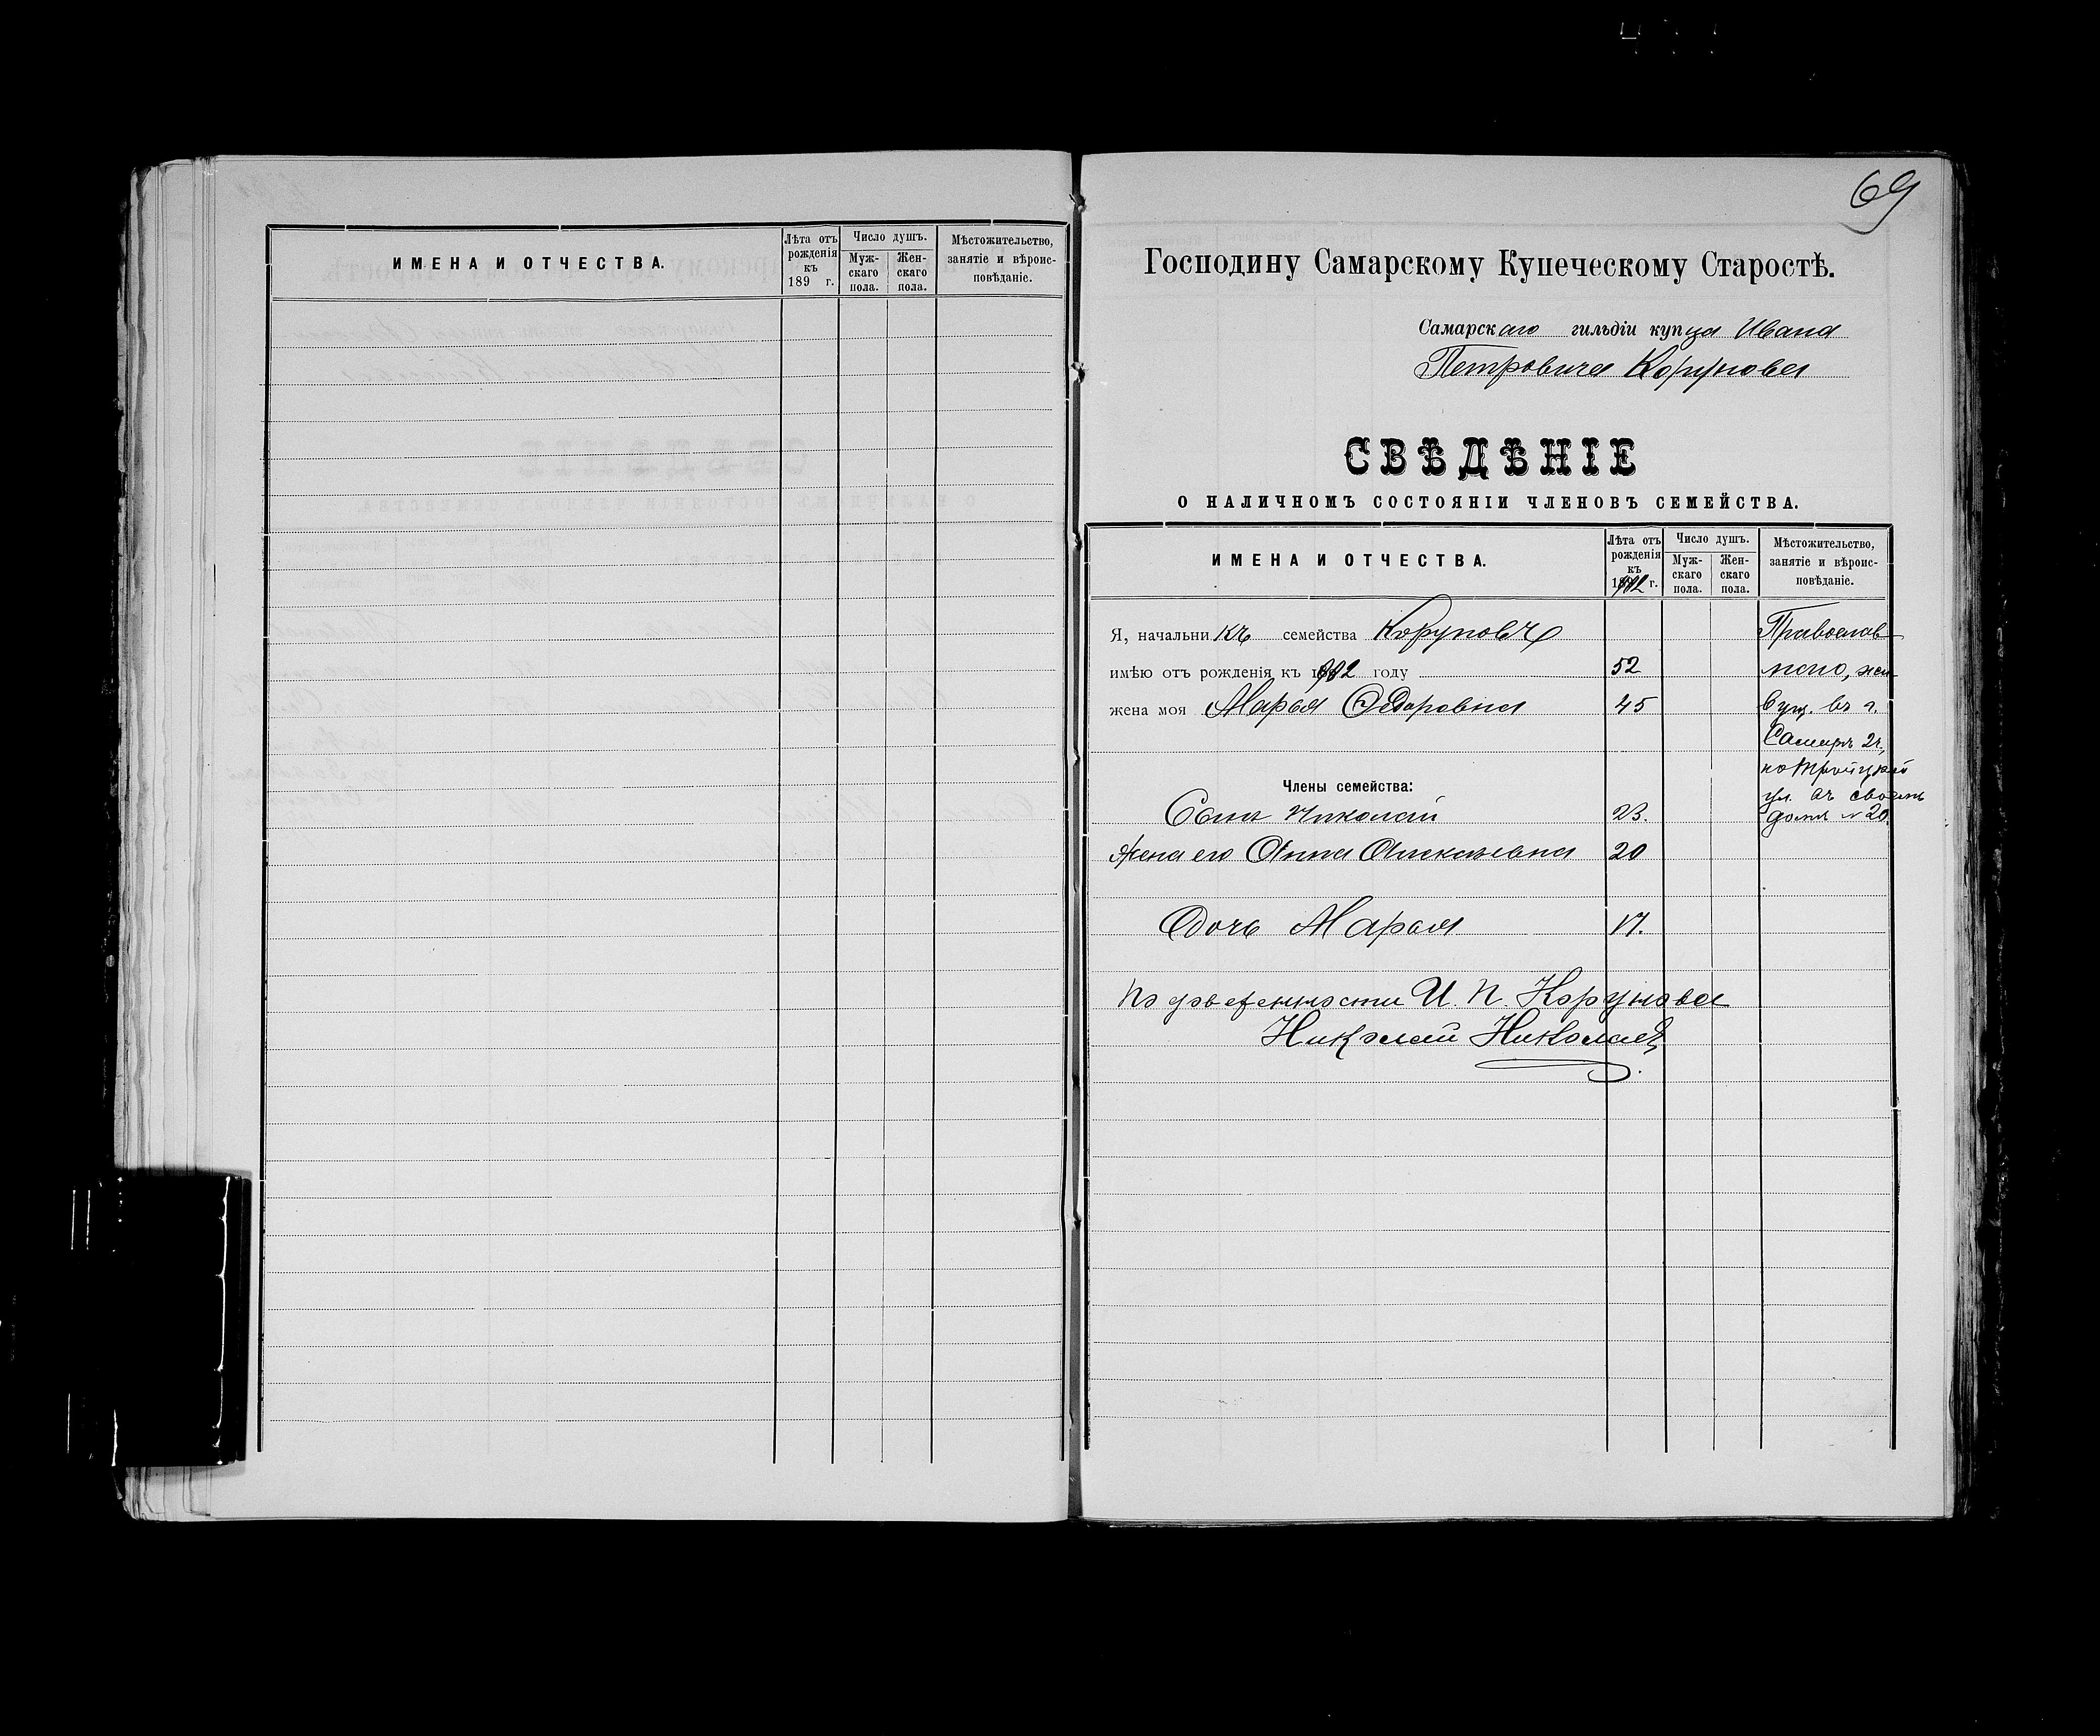 ИМЕНА И ОТЧЕСТВА.
Лѣта отъ рожденія къ 189 г.
Число душъ.
Мужскаго пола.
Женскаго пола.
Мѣстожительство, занятіе и вѣроисповѣданіе.
69
Господину Самарскому Купеческому Старостѣ.
Самарскаго гильдіи купца Ивана
Петровича Корунова
СВѢДѢНІЕ
О НАЛИЧНОМЪ СОСТОЯНІИ ЧЛЕНОВЪ СЕМЕЙСТВА.
ИМЕНА И ОТЧЕСТВА.
Лѣта отъ
рожденія
къ
1902 г.
Число душъ.
Муж-
скаго
пола.
Жен-
скаго
пола.
Мѣстожительство,
занятіе и вѣроис-
повѣданіе.
Я, начальникъ семейства Коруновъ
Православ
имѣю отъ рожденія къ 1902 году 52
наго, жи
жена моя Марья Федоровна 45
вущ. въ г.
Самарѣ 2 ч.,
по Троицкой
Члены семейства:
ул. въ своемъ
Сынъ Николай 23.
домѣ № 20.
Жена его Анна Алексѣевна 20
Дочь Марья 17.
По довѣренности И. П. Корунова
Николай Николаев